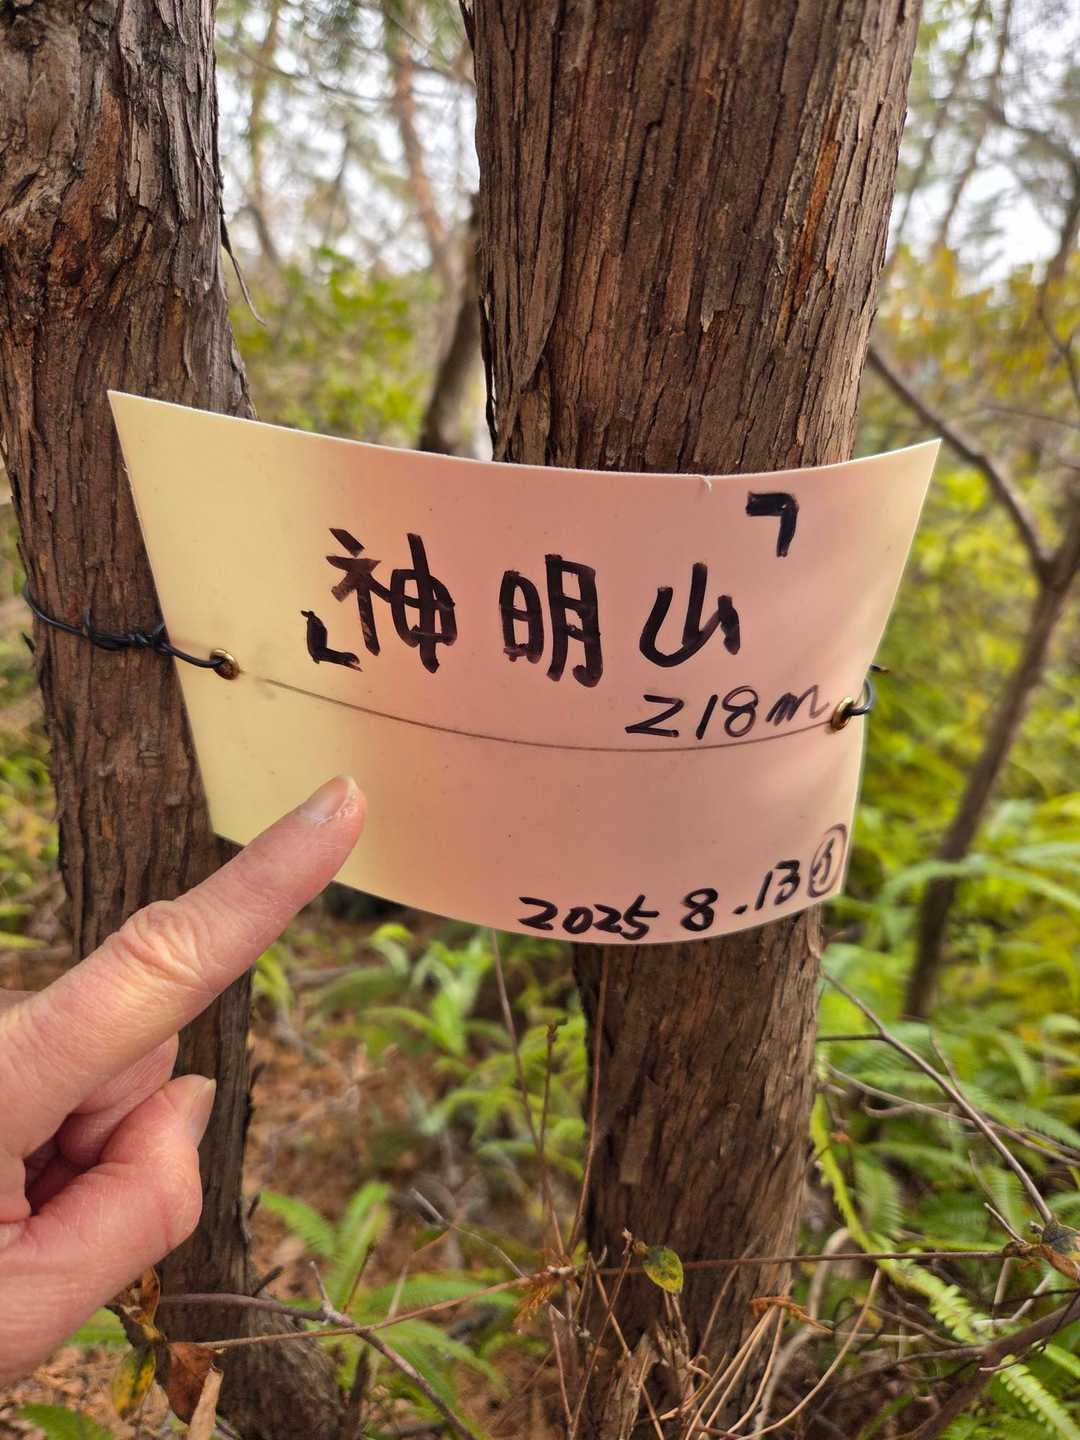 神明山
218m
2025 8.13